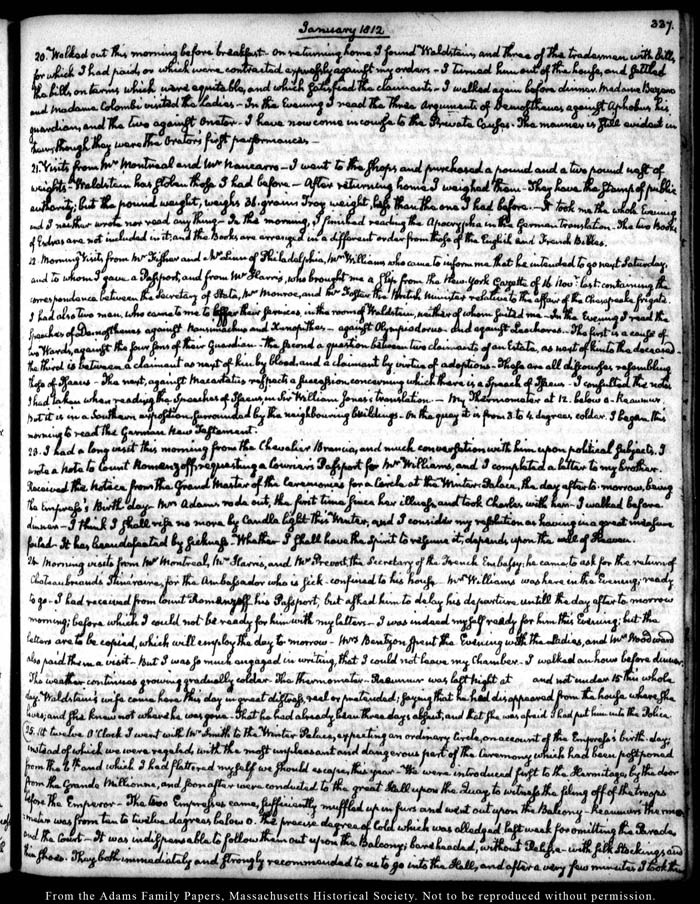 January 1812
337.
20. Walked out this morning before breakfast. On returning home I found Waldstein, and three of the tradesmen with bills,
for which I had paid, or which were contracted expressly against my orders. I turned him out of the house, and settled
the bills, on terms which were equitable, and which satisfied the claimants. I walked again before dinner. Madame Bezara
and Madame Colombi visited the ladies. In the Evening I read the three Arguments of Demosthenes against Aphobus, his
guardian, and the two against Onetor. I have now come in course to the Private Causes. The manner is still evident in
them, though they were the Orator's first performances.
21. Visits from Mr Montreal and Mr Navarro. I went to the shops and purchased a pound, and a two pound nest of
weights. Waldstein has stolen those I had before. After returning home I weighed them. They have the stamp of public
authority; but the pound weight, weighs 38. grains Troy weight, less than the one I had before. It took me the whole Evening
and I neither wrote nor read any thing. In the morning, I finished reading the Apocrypha in the German translation. The two Books
of Esdras are not included in it; and the Books are arranged in a different order from those of the English and French Bibles.
22. Morning visit from Mr Fisher and Mr Lewis of Philadelphia, Mr Williams who came to inform me that he intended to go next Saturday,
and to whom I gave a Passport, and from Mr Harris, who brought me a slip from the New-York Gazette of 16 Novr. last. containing the
correspondence between the Secretary of State, Mr Monroe, and Mr Foster the British Minister relative to the affair of the Chesapeake frigate.
I had also two men, who came to me to offer their services, in the room of Waldstein, neither of whom suited me. In the Evening I read the
Speeches of Demosthenes against Nausimachus and Xenopithes — against Olympiodorus. and against Leochares. The first is a cause of
two Wards, against the four sons of their Guardian. the second a question between two claimants of an Estate, as next of kin to the deceased.
the third is between a claimant as next of kin by blood, and a claimant by virtue of adoptions. These are all discourses resembling
those of Isaeus. The next, against Macartatus respects a succession, concerning which there is a Speech of Isaeus. I consulted the notes
I had taken when reading the Speeches of Isaeus, in Sir William Jones's translation. My Thermometer at 12. below 0. Reaumur,
but it is in a Southern exposition surrounded by the neighbouring buildings. On the quay it is from 3 to 4 degrees colder. I began this
morning to read the German New Testament.
23. I had a long visit this morning from the Chevalier Brancia, and much conversation with him upon political subjects. I
wrote a Note to Count Romanzoff, requesting a Courier's Passport for Mr Williams, and I completed a letter to my brother.
Received the Notice from the Grand Master of the Ceremonies for a Circle at the Winter Palace, the day after to-morrow, being
the Empress's Birth day. Mrs Adams rode out, the first time since her illness, and took Charles with her. I walked before
dinner. I think I shall rise no more by Candle light this Winter, and I consider my resolution as having in a great measure
failed. It has been defeated by sickness. Whether I shall have the Spirit to resume it, depends upon the will of Heaven.
24. Morning visits from Mr Montreal, Mr Harris, and Mr Prevost, the Secretary of the French Embassy; he came to ask for the return of
Chateaubriands Itineraire, for the Ambassador who is sick. confined to his house. Mr Williams was here in the Evening; ready
to go. I had received from Count Romanzoff his Passport, but asked him to delay his departure untill the day after to-morrow
morning; before which I could not be ready for him with my letters. I was indeed myself ready for him this Evening; but the
letters are to be copied, which will employ the day to-morrow. Mrs Bentzon spent the Evening with the ladies, and Mrs Woodward
also paid them a visit. But I was so much engaged in writing, that I could not leave my Chamber. I walked an hour before dinner.
The weather continues growing gradually colder. The thermometer. Reaumur was last Night at and not under 15 this whole
day. Waldstein's wife came here this day in great distress, real or pretended; saying that he had disappeared from the house where she
lives; and she knew not where he was gone. That he had already been three days absent, and that she was afraid I had put him into the Police.
25. At twelve O'Clock I went with Mr Smith to the Winter Palace, expecting an ordinary Circle, on account of the Empress's birth-day,
instead of which we were regaled, with the most unpleasant and dangerous part of the Ceremony which had been postponed
from the 6th and which I had flattered myself we should escape, this year. We were introduced first to the Hermitage, by the door
from the Grande Millionne, and soon after were conducted to the great Hall upon the Quay, to witness the filing off of the troops
before the Emperor. The two Empresses came, sufficiently muffled up in furs and went out upon the Balcony. Reaumur's thermo-
meter was from ten to twelve degrees below 0. The precise degree of Cold which was alledged last week for omitting the Parade,
and the Court. It was indispensable to follow them out upon the Balcony, bare headed, without Pelisse. with silk stockings and
thin shoes. They both immediately and strongly recommended to us to go into the Hall, and after a very few minutes I took the
From the Adams Family Papers, Massachusetts Historical Society. Not to be reproduced without permission.